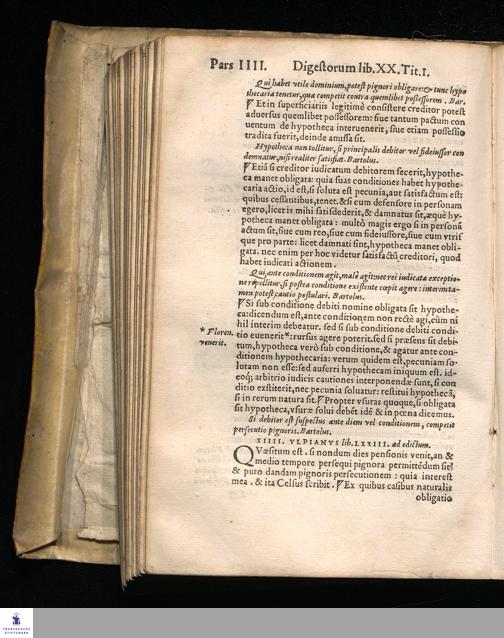 Pars IIII. Digestorum lib.XX.Tit.I.
Qui habet vtile dominium, potest pignori obligare: & tunc hypo
thecaria tenetur, qua competit contra quemlibet possessorem. Bar.
Et in superficiariis legitimè consistere creditor potest
aduersus quemlibet possessorem: siue tantum pactum con
uentum de hypotheca interuenerit, siue etiam possessio
tradita fuerit, deinde amissa sit.
Hypotheca non tollitur, si principalis debitor vel fideiussor con
demnatur, nisi realiter satisfiat. Bartolus.
Etiā si creditor iudicatum debitorem fecerit, hypothe-
ca manet obligata: quia suas conditiones habet hypothe-
caria actio, id est, si soluta est pecunia, aut satisfactum est:
quibus cessantibus, tenet. & si cum defensore in personam
egero, licet is mihi satisdederit, & damnatus sit, æquè hy-
potheca manet obligata: multò magis ergo si in personā
actum sit, siue cum reo, siue cum fideiussore, siue cum vtris
que pro parte: licet damnati sint, hypotheca manet obli-
gata. nec enim per hoc videtur satisfactū creditori, quod
habet iudicati actionem.
Qui ante conditionem agit, malè agit: nec rei iudicatæ exceptio-
ne repellitur, si postea conditione existente cœpit agere: interim ta-
men potest, cautio postulari. Bartolus.
Si sub conditione debiti nomine obligata sit hypothe-
ca: dicendum est, ante conditionem non rectè agi, cùm ni
hil interim debeatur. sed si sub conditione debiti condi-
* Floren. tio euenerit*: rursus agere poterit. sed si præsens sit debi-
venerit. tum, hypotheca verò sub conditione, & agatur ante con-
ditionem hypothecaria: verum quidem est, pecuniam so-
lutam non esse: sed auferri hypothecam iniquum est. id-
eoq; arbitrio iudicis cautiones interponendæ sunt, si con
ditio extiterit, nec pecunia soluatur: restitui hypothecā,
si in rerum natura sit. Propter vsuras quoque, si obligata
sit hypotheca, vsuræ solui debēt. idē & in pœna dicemus.
Si debitor est suspectus ante diem vel conditionem, competit
persecutio pignoris. Bartolus.
XIIII. VLPIANVS lib. LXXIII. ad edictum.
QVæsitum est. si nondum dies pensionis venit, an &
medio tempore persequi pignora permittēdum sit?
& puto dandam pignoris persecutionem: quia interest
mea. & ita Celsus scribit. Ex quibus casibus naturalis
obligatio